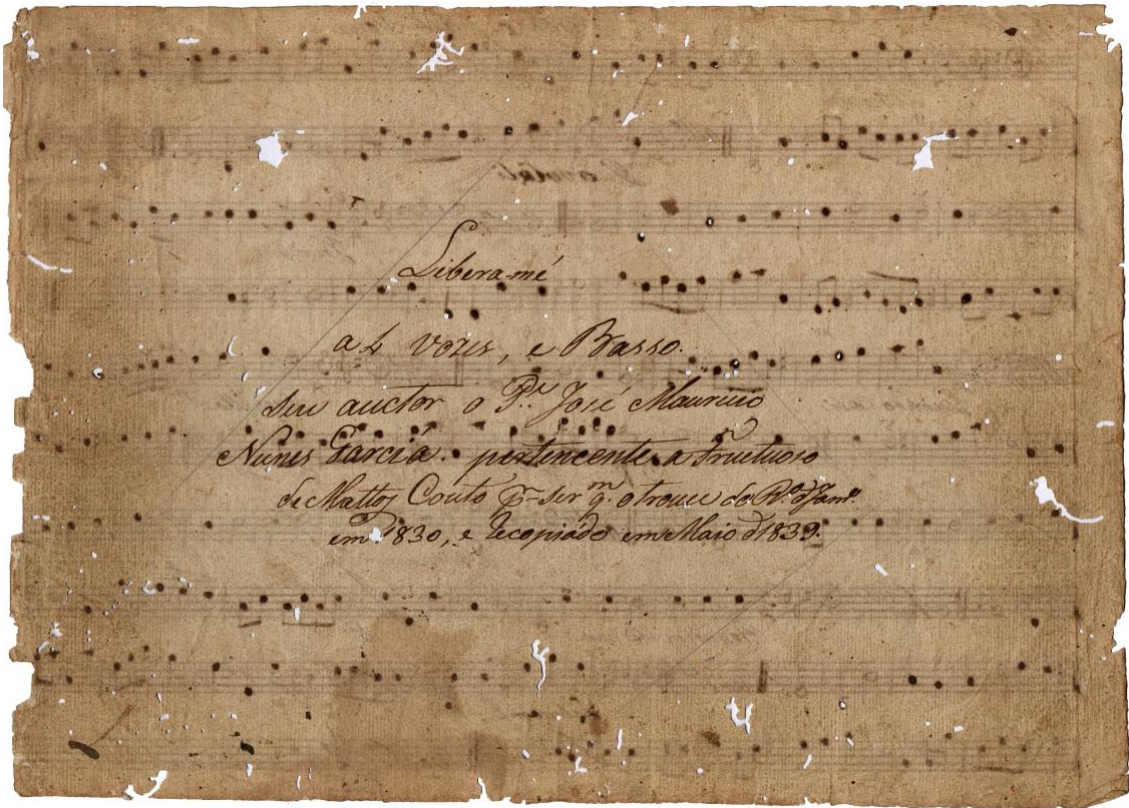 Libera-mé
a 4 vozes, e Basso.
Seu auctor o P.e José Mauricio
Nunes Garcia. pertencente a Fructuoso
de Mattos Couto pr. ser m q. o trouce do Ro. d Jano.
em 1830, e recopiado em Maio d 1839.